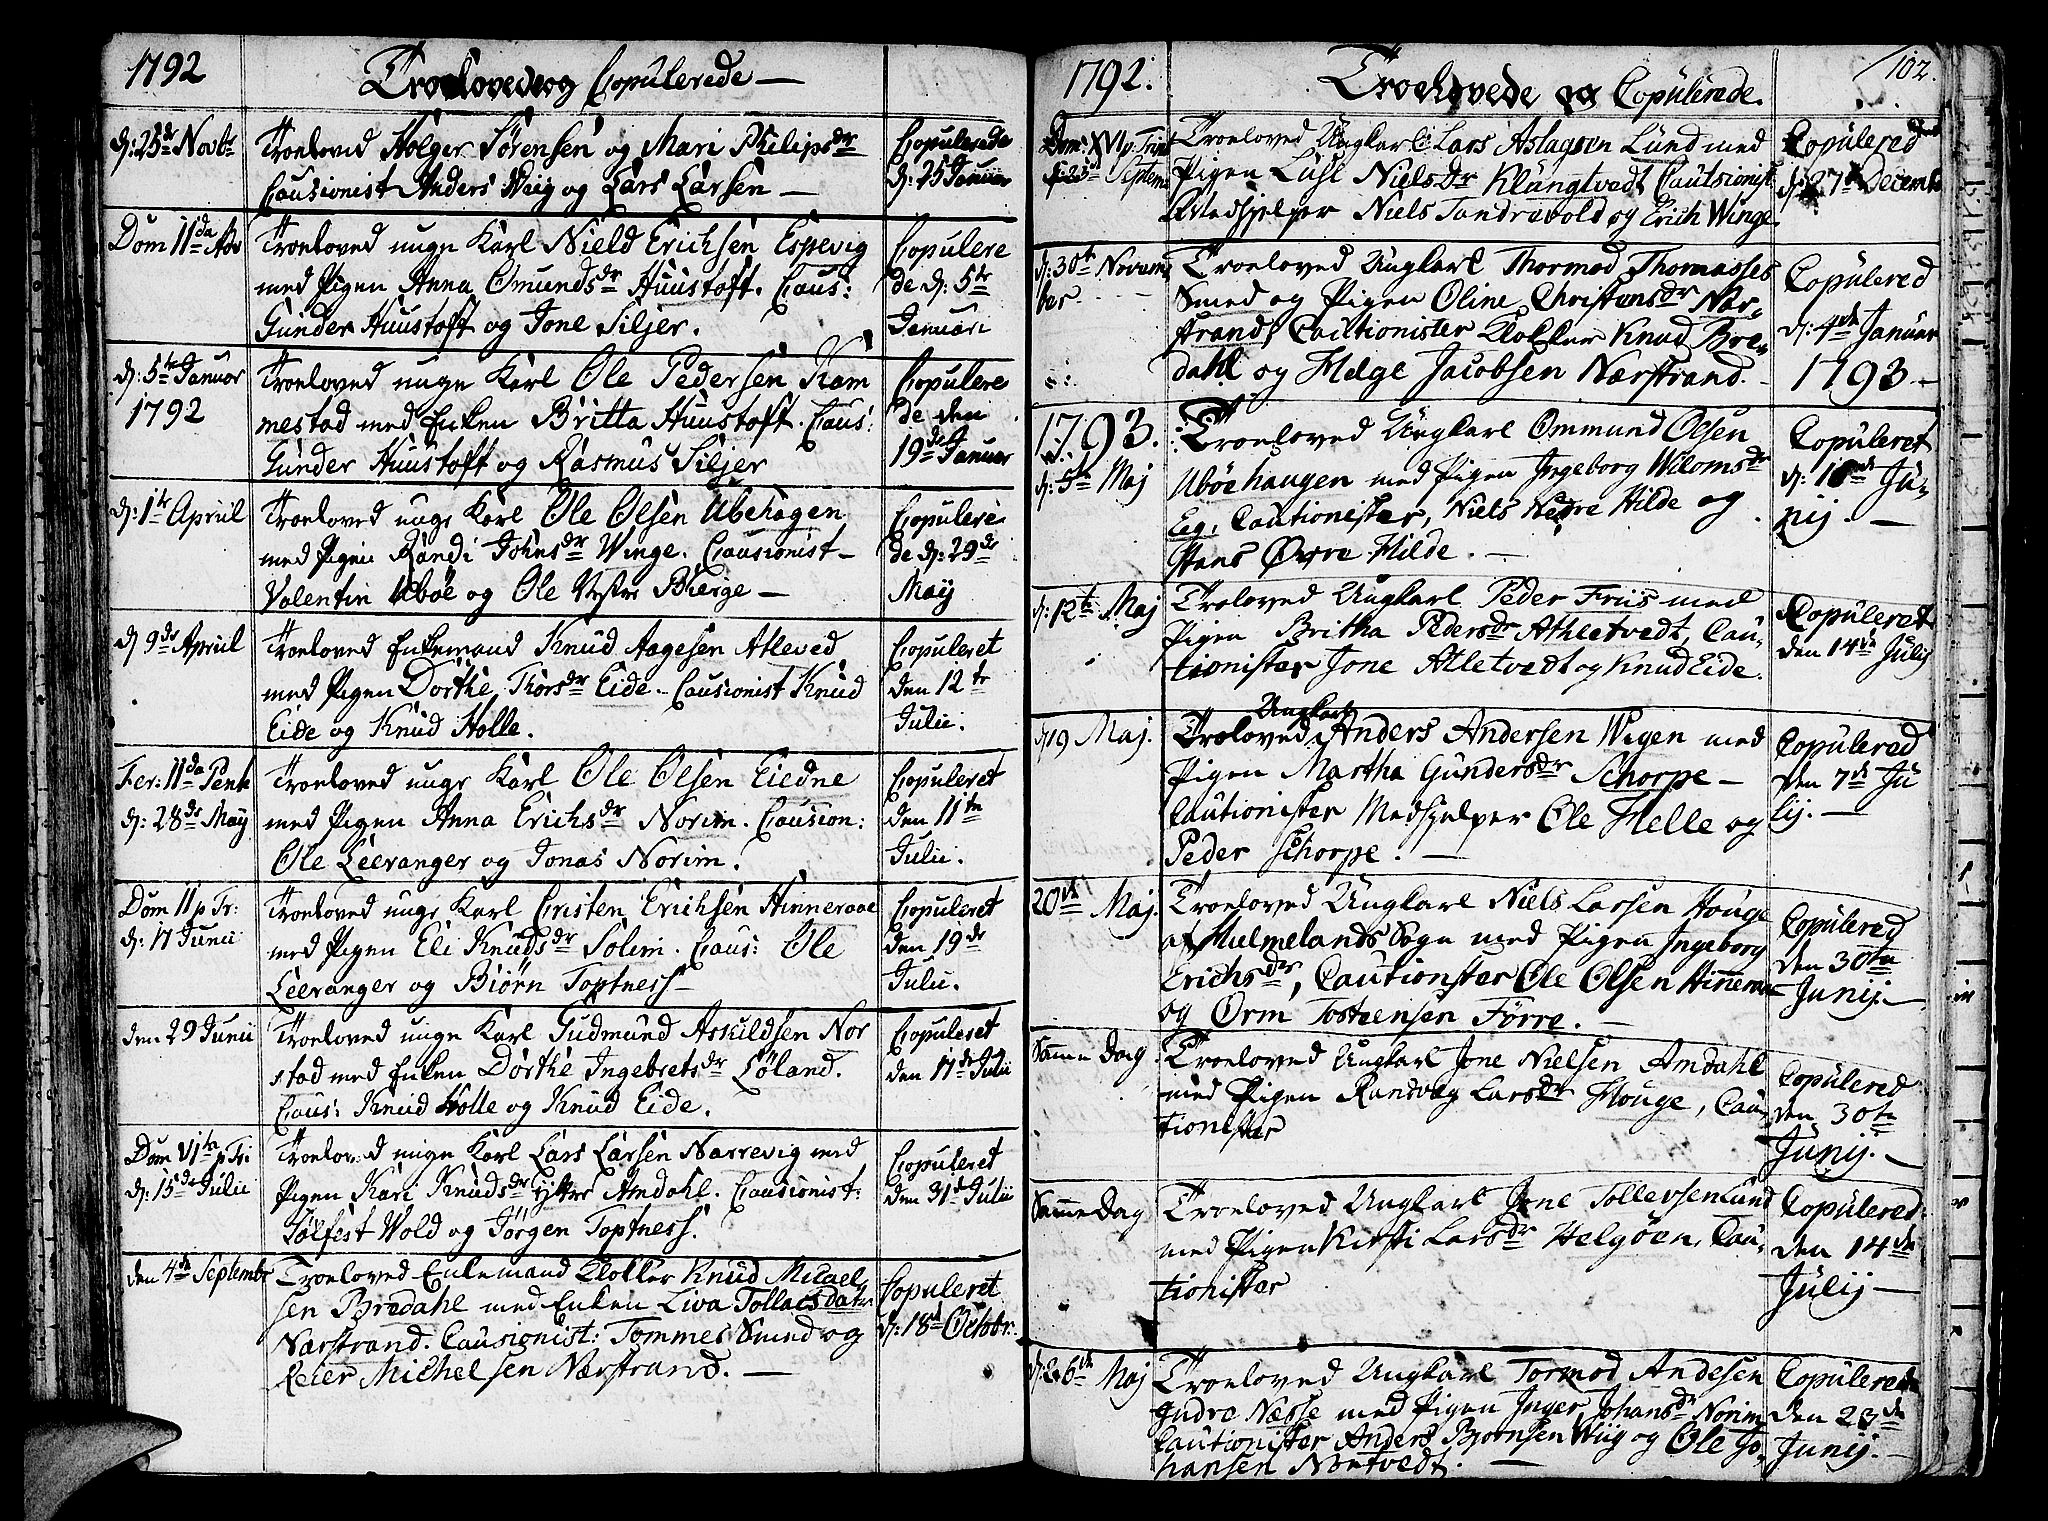 1792
Troelovede og Copulerede —
d: 25de Novbr
Troeloved Holger Sörensen og Mari Philipsdr
Causionist Anders Wiig og Lars Larsen —
Copulerede
d: 25 Januar
Dom 11da Adv
Troeloved unge Karl Nield Erichsen Espevig
med Pigen Anna Omundsdr Huustoft. Caus:
Gunder Huustoft og Jone Siljer.
Copulere
de d: 5te
Januari
d: 5te Januar
1792
Troeloved unge Karl Ole Pedersen Ram
mestad med Enken Britta Huustoft. Caus:
Gunder Huustoft og Rasmus Siljer
Copulere
de den
19de Januar
d: 1te Apriil
Troeloved unge Karl Ole Olsen Ubehagen
med Pigen Randi Johnsdr Winge. Causionist
Valentin Uböe og Ole Vestre Bierge —
Copulere
de d: 29de
Maÿ
d 9de Apriil
Troeloved Enkemand Knud Aagesen Atleved
med Pigen Dorthe Thorsdr Eide. Causionist Knud
Eide og Knud Holle.
Copuleret
den 12te
Julii.
Fer: 11da Pent
d: 28de Maÿ
Troeloved unge Karl Ole Olsen Eiedne
med Pigen Anna Erichsdr Norim. Causion:
Ole Leeranger og Jonas Norim.
Copuleret
den 11te
Julii.
Dom 11 p Tr:
d: 17 Junii
Troeloved unge Karl Cristen Erichsen Hinneraae
med Pigen Eli Knudsdr Solem. Caus: Ole
Leeranger og Biörn Toptness
Copuleret
den 19de
Julii.
den 29 Junii
Troeloved unge Karl Gudmund Asuldsen Nor
stad med Enken Dorthe Ingebretsdr Löland.
Caus: Knud Holle og Knud Eide.
Copuleret
den 17de Julii
Dom VIta p Tr:
d: 15de Julii
Troeloved unge Karl Lars Larsen Narrevig med
Pigen Kari Knudsdr Yttre Amdahl. Causionist:
Sölfest Wold og Jörgen Toptness.
Copuleret
den 31de Julii
den 4de Septembr
Troeloved Enkemand Klokker Knud Micael
sen Bredahl med Enken Liva Tollaesdatr
Narstrand. Causionist: Tommes Smed og
Reier Michelsen Nærstrand. —
Copuleret
d: 18de Octobr.
1792.
Troelovede og Copulerede.
102.
Dom: XVI p. Trinit
d: 23de Septem
Troeloved Ungkarl Lars Aslagsen Lund med
Pigen Lusl Nielsdr Klungtvedt Cautionist
Medhjelper Niels Tandravold og Erich Winge.
Copulered
d: 27de Decemb
d: 30te Novem
ber
Troeloved Ungkarl Thormod Thomasses
Smed og Pigen Oline Christensdr Nær-
strand, Cautionister Klokker Knud Bre-
dahl og Helge Jacobsen Nærstrand. -
Copulered
d: 4de Januar
1793 -
1793.
d: 5te Maj
Troeloved Ungkarl Ommund Olsen
Uböehaugen med Pigen Ingeborg Wilomsdr
Eeg, Cautionister, Niels Nedre Hilde og
Hans Øvre Hilde. —
Copuleret
d: 16de Ju-
nij. —
d: 12te Maj
Troeloved Ungkarl Peder Friis med
Pigen Britha Pedersdr Athletvedt, Cau-
tionister Jone Atletvedt og Knud Eide.
Copuleret
den 14de Julij
d 19 Maj.
Ungkarl
Troeloved Anders Andersen Wigen med
Pigen Martha Gundersdr Schorpe —
Cautionister Medhjelper Ole Helle og
Peder Schorpe. —
Copulered
den 7de Ju
lij. —
20de Maj.
Troeloved Ungkarl Niels Larsen Houge
af Hielmelands Sogn med Pigen Ingeborg
Erichsdr, Cautionster Ole Olsen Hinneraae
og Orm Tosteensen Förre. —
Copulered
den 30te
Junij. —
Samme Dag
Troeloved Ungkarl Jone Nielsen Amdahl
med Pigen Randvæg Larsdr Houge, Cau-
tionister
Copulered
den 30te
Junij. —
Samme Dag
Troeloved Ungkarl Jone Tollevsen Lund
med Pigen Kirsti Larsdr Helgöen, Cau-
tionister
Copulered
den 14de
Julij —
d: 26de Maj
Troeloved Ungkarl Tormod Andesen
Indre Næsse med Pigen Inger Johansdr Norim
Cautionister Anders Bjornsen Wiig og Ole Jo-
hansen Nöttvedt. —
Copulered
den 23de
Junij. —